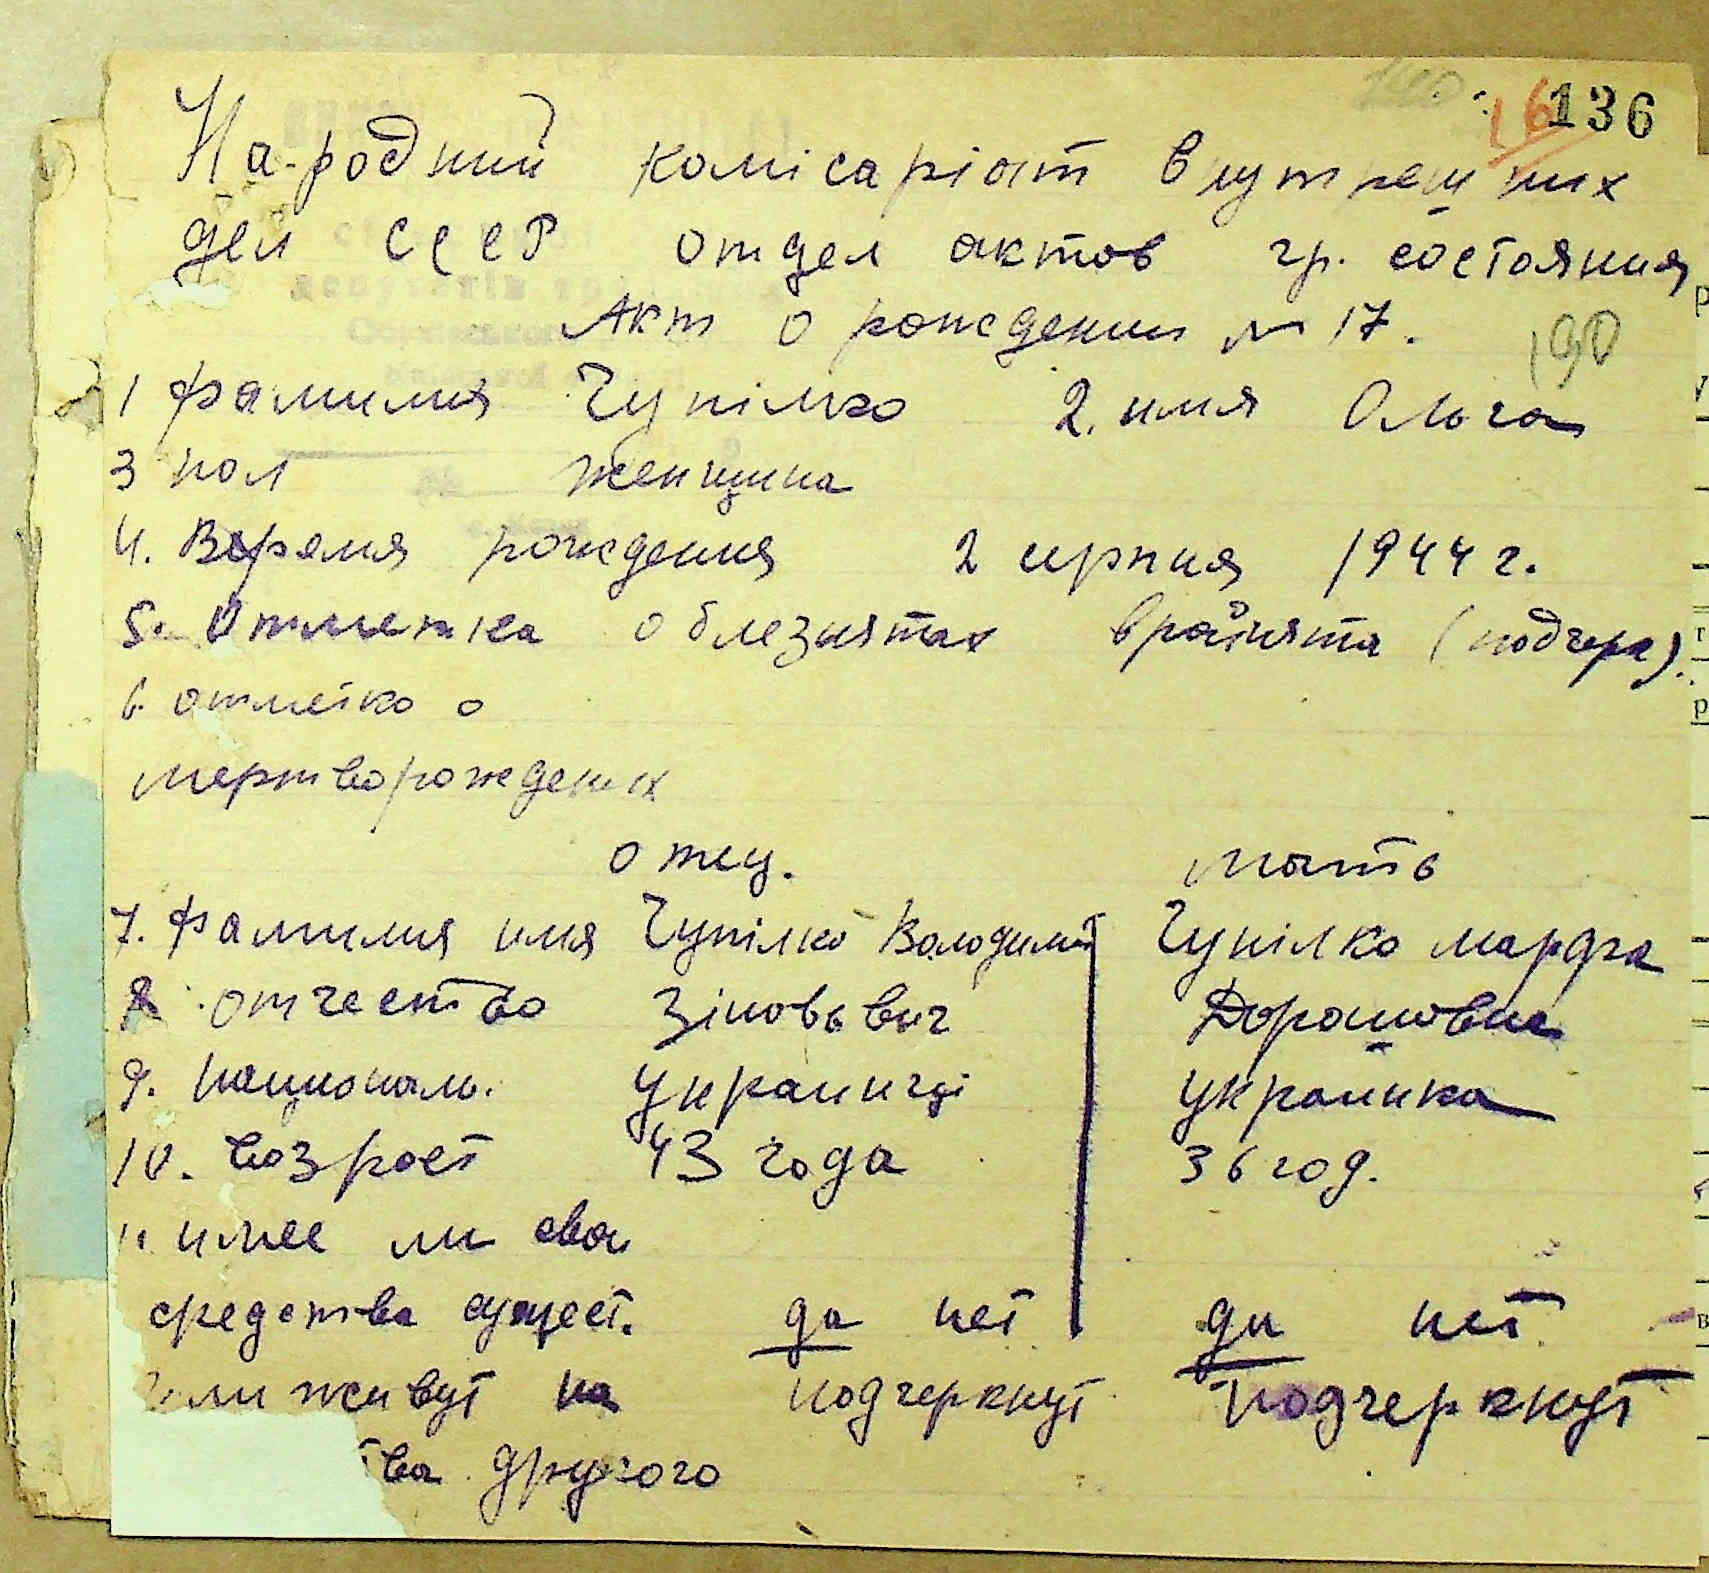 136
На-родний комісаріат внутрешних
дел СССР отдел актов гр. состояния
Акт о рождении № 17.
190
1 фамилия Чупілко 2. имя Ольга
3 пол женщина
4. Время рождения 2 серпня 1944 г.
5. Отметка о близнятах (подчерк).
6. отметка о
мертворожденых
отец. мать
7. фамилия имя Чупілко Володимир Чупілко марфа
8. отчество Зіновьвич Дорошовна
9. националь. Украинці Украинка
10. возрост 43 года 36 год.
11. имее ли свои
средства сущест. да нет да нет
или живут на подчеркнут подчеркнут
тва другого